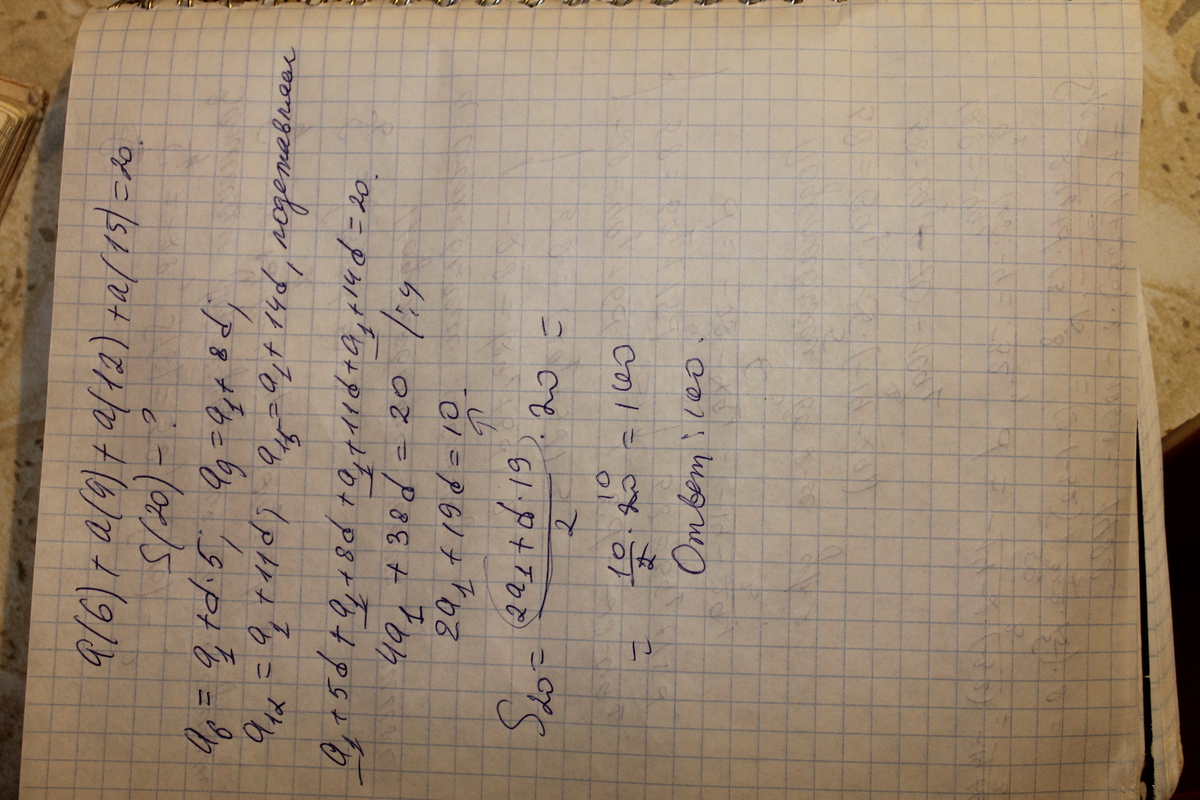 a(6) + a(9) + a(12) + a(15) = 20.
S(20) - ?
a₆ = a₁ + d·5; a₉ = a₁ + 8d;
a₁₂ = a₁ + 11d; a₁₅ = a₁ + 14d, подставляем
a₁ + 5d + a₁ + 8d + a₁ + 11d + a₁ + 14d = 20.
4a₁ + 38d = 20 /:4
2a₁ + 19d = 10.
S₂₀ = (2a₁ + d·19)/2 · 20 =
= 10/2 · 20 = 100
Ответ: 100.